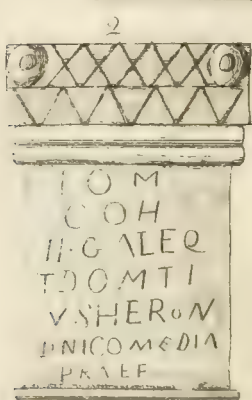 2
I O M
COH
II·GALEQ
T DOMTI
VSHERON
DNICOMEDIA
PRAEF